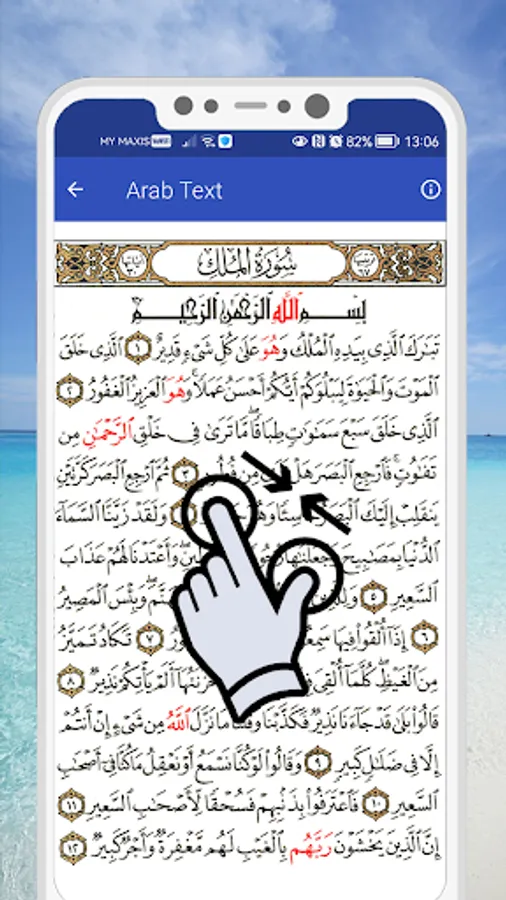 MY MAXIS 82% 13:06
Arab Text
سُورَةُ الْمُلْكِ
بِسْمِ اللَّهِ الرَّحْمَٰنِ الرَّحِيمِ
تَبَٰرَكَ الَّذِى بِيَدِهِ الْمُلْكُ وَهُوَ عَلَىٰ كُلِّ شَىْءٍ قَدِيرٌ ١ الَّذِى خَلَقَ
الْمَوْتَ وَالْحَيَوٰةَ لِيَبْلُوَكُمْ أَيُّكُمْ أَحْسَنُ عَمَلًا وَهُوَ الْعَزِيزُ الْغَفُورُ ٢
الَّذِى خَلَقَ سَبْعَ سَمَٰوَٰتٍ طِبَاقًا مَّا تَرَىٰ فِى خَلْقِ الرَّحْمَٰنِ مِن
تَفَٰوُتٍ فَارْجِعِ الْبَصَرَ هَلْ مِن فُطُورٍ ٣ ثُمَّ ارْجِعِ الْبَصَرَ كَرَّتَيْنِ
يَنقَلِبْ إِلَيْكَ الْبَصَرُ وَلَقَدْ زَيَّنَّا السَّمَآءَ
الدُّنْيَا بِمَصَٰبِيحَ وَجَعَلْنَٰهَا وَأَعْتَدْنَا لَهُمْ عَذَابَ
السَّعِيرِ ٥ وَبِئْسَ الْمَصِيرُ
٦ إِذَآ أُلْقُوا۟ فِيهَا سَمِعُوا۟ ٧ تَكَادُ تَمَيَّزُ
مِنَ الْغَيْظِ كُلَّمَآ أُلْقِىَ خَزَنَتُهَآ أَلَمْ يَأْتِكُمْ نَذِيرٌ ٨
قَالُوا۟ بَلَىٰ قَدْ جَآءَنَا نَذِيرٌ فَكَذَّبْنَا وَقُلْنَا مَا نَزَّلَ اللَّهُ مِن شَىْءٍ إِنْ أَنتُمْ
إِلَّا فِى ضَلَٰلٍ كَبِيرٍ ٩ وَقَالُوا۟ لَوْ كُنَّا نَسْمَعُ أَوْ نَعْقِلُ مَا كُنَّا فِىٓ أَصْحَٰبِ
السَّعِيرِ ١٠ فَاعْتَرَفُوا۟ بِذَنۢبِهِمْ فَسُحْقًا لِّأَصْحَٰبِ السَّعِيرِ ١١
إِنَّ الَّذِينَ يَخْشَوْنَ رَبَّهُم بِالْغَيْبِ لَهُم مَّغْفِرَةٌ وَأَجْرٌ كَبِيرٌ ١٢